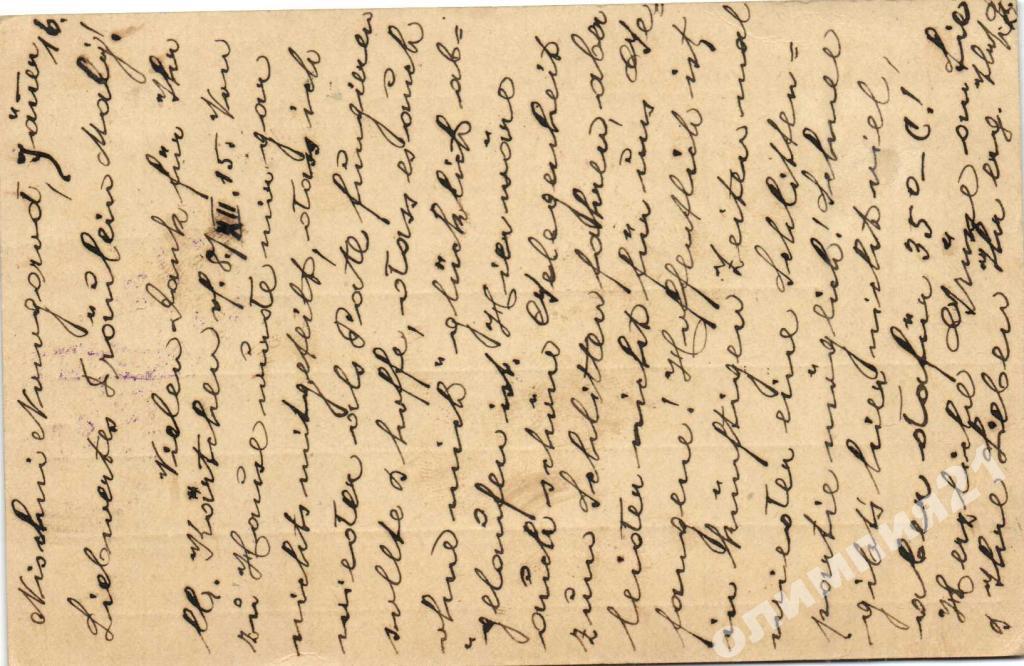 Nischni Nowgorod, Jänner 16.
Liebwertes Fräulein Maly!
Vielen Dank für Ihr
lb. Kärtchen v. 8./XII. 15. Von
zu Hause wurde mir gar
nichts mitgeteilt, dass ich
wieder als Pate fungieren
sollte & hoffe, dass es auch
ohne mich glücklich ab=
gelaufen ist. Hier wäre
auch schöne Gelegenheit
zum Schlittenfahren, aber
leider nicht für uns Ge=
fangene! Hoffentlich ist
in künftigen Zeiten mal
wieder eine Schlitten=
partie möglich! Schnee
gibt's hier nicht viel,
aber dafür 35°-C!
Herzliche Grüße an Sie
& Ihre Lieben Ihr erg.
ОЛИМПИЯ21